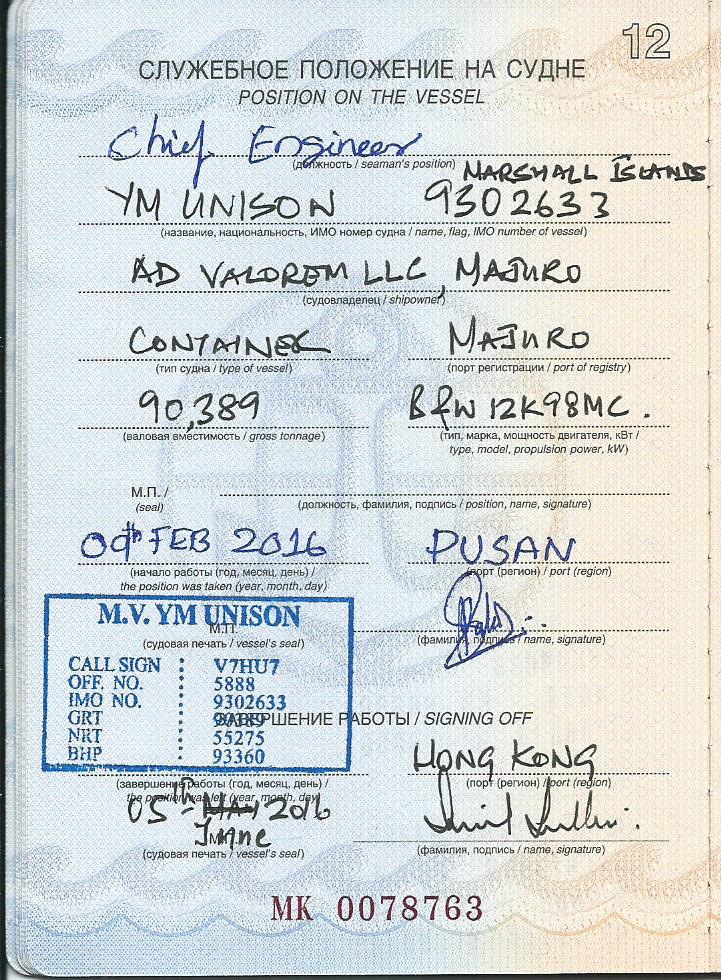 12
СЛУЖЕБНОЕ ПОЛОЖЕНИЕ НА СУДНЕ
POSITION ON THE VESSEL
Chief Engineer
(должность / seaman's position)
MARSHALL ISLANDS
YM UNISON 9302633
(название, национальность, ИМО номер судна / name, flag, IMO number of vessel)
AD VALOREM LLC, MAJURO
(судовладелец / shipowner)
CONTAINER MAJURO
(тип судна / type of vessel) (порт регистрации / port of registry)
90,389 B&W 12K98MC.
(валовая вместимость / gross tonnage) (тип, марка, мощность двигателя, кВт /
type, model, propulsion power, kW)
М.П. /
(seal) (должность, фамилия, подпись / position, name, signature)
FEB 2016 PUSAN
(начало работы (год, месяц, день) / порт (регион) / port (region)
the position was taken (year, month, day)
M.V. YM UNISON
М.П.
(судовая печать / vessel's seal) (фамилия, подпись / name, signature)
CALL SIGN : V7HU7
OFF. NO. : 5888
IMO NO. : 9302633
GRT : 90389
ЗАВЕРШЕНИЕ РАБОТЫ / SIGNING OFF
NRT : 55275
BHP : 93360
HONG KONG
(завершение работы (год, месяц, день) / (порт (регион) / port (region)
the position was left (year, month, day)
05th MAY 2016
June
М.П.
(судовая печать / vessel's seal) (фамилия, подпись / name, signature)
МК 0078763